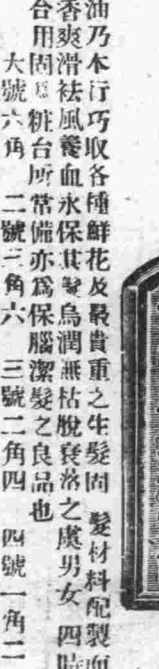 油乃本行巧取各種鮮花及最貴重之生髮固髮材料配製而
香爽滑袪風養血永保其髮烏潤無枯脫衰落之虞男女四時
合用固為粧台所常備亦為保腦潔髮之良品也
大號六角 二號三角六 三號二角四 四號一角二